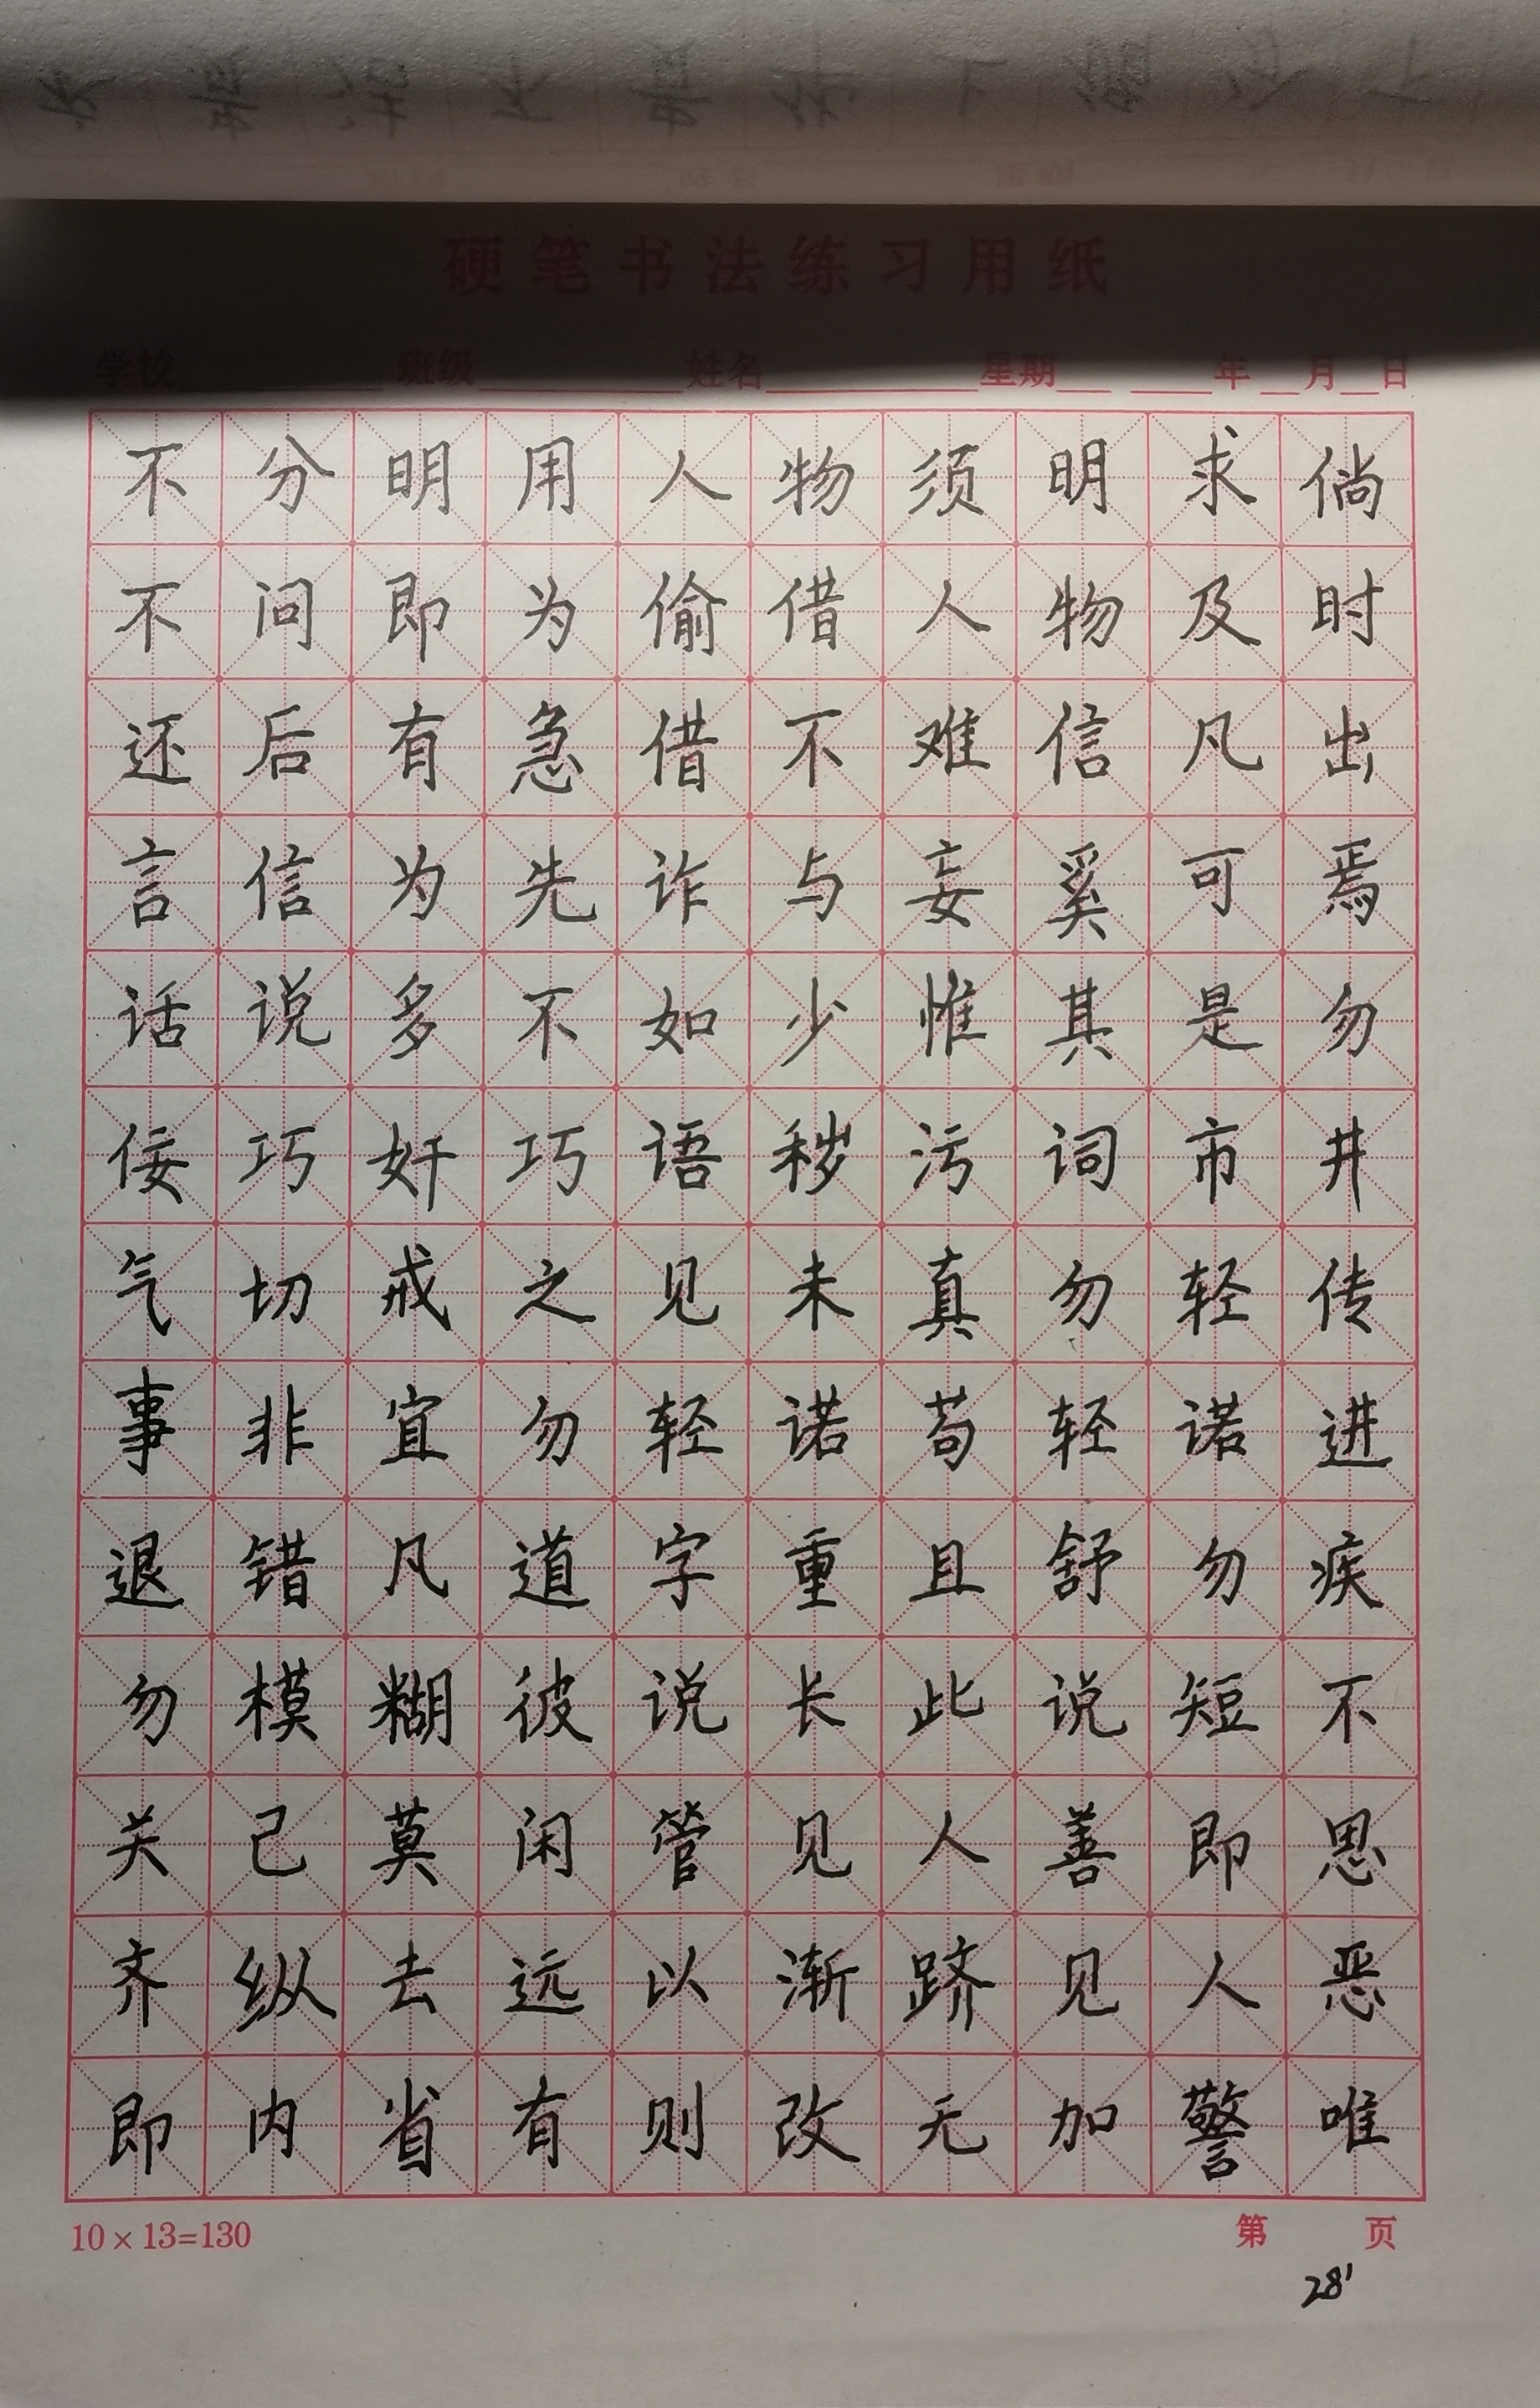 硬笔书法练习用纸
学校 班级 姓名 星期 年 月 日
不分明用人物须明求倘
不问即为偷借人物及时
还后有急借不难信凡出
言信为先诈与妄奚可焉
话说多不如少惟其是勿
佞巧奸巧语秽污词市井
气切戒之见未真勿轻传
事非宜勿轻诺苟轻诺进
退错凡道字重且舒勿疾
勿模糊彼说长此说短不
关己莫闲管见人善即思
齐纵去远以渐跻见人恶
即内省有则改无加警唯
10×13=130
第 页
28'